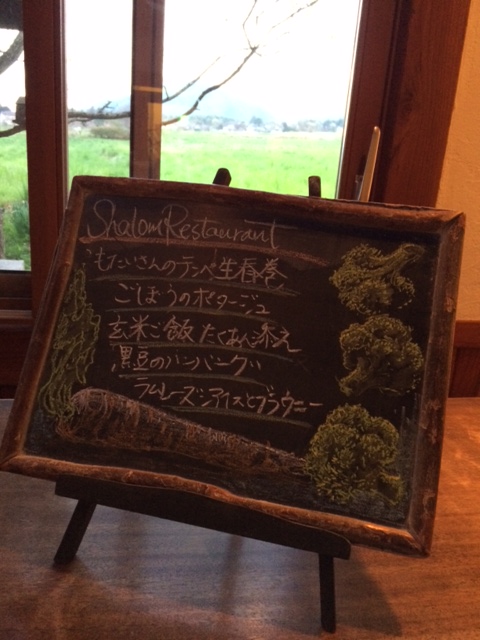 Shalom Restaurant
もたいさんのテンペ生春巻
ごぼうのポタージュ
玄米ご飯 たくあん添え
黒豆のハンバーグ
ラムレーズンアイスとブラウニー